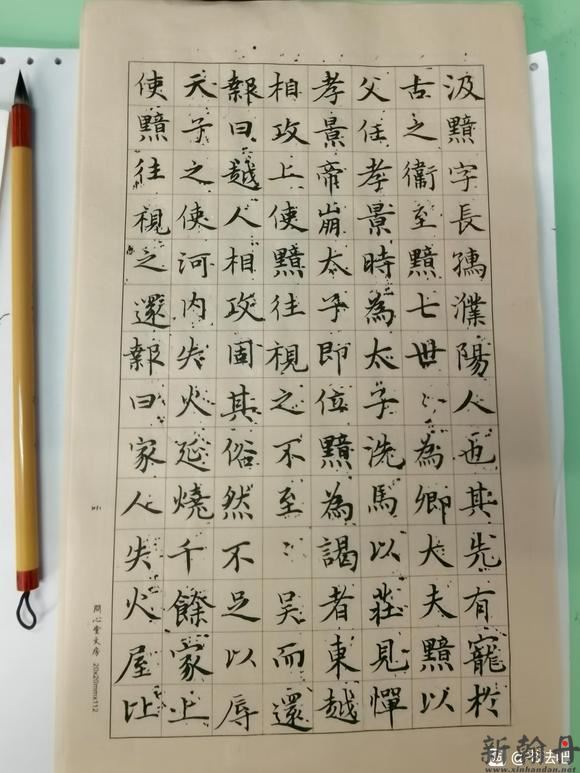 汲黯字長孺濮陽人也其先有寵於
古之衛至黯七世〻為卿大夫黯以
父任孝景時為太子洗馬以莊見憚
孝景帝崩太子即位黯為謁者東越
相攻上使黯往視之不至〻吳而還
報曰越人相攻固其俗然不足以辱
天子之使河内失火延燒千餘家上
使黯往視之還報曰家人失火屋比
問心堂文房 20x20mmx112
新翰丹
www.xinhandan.net